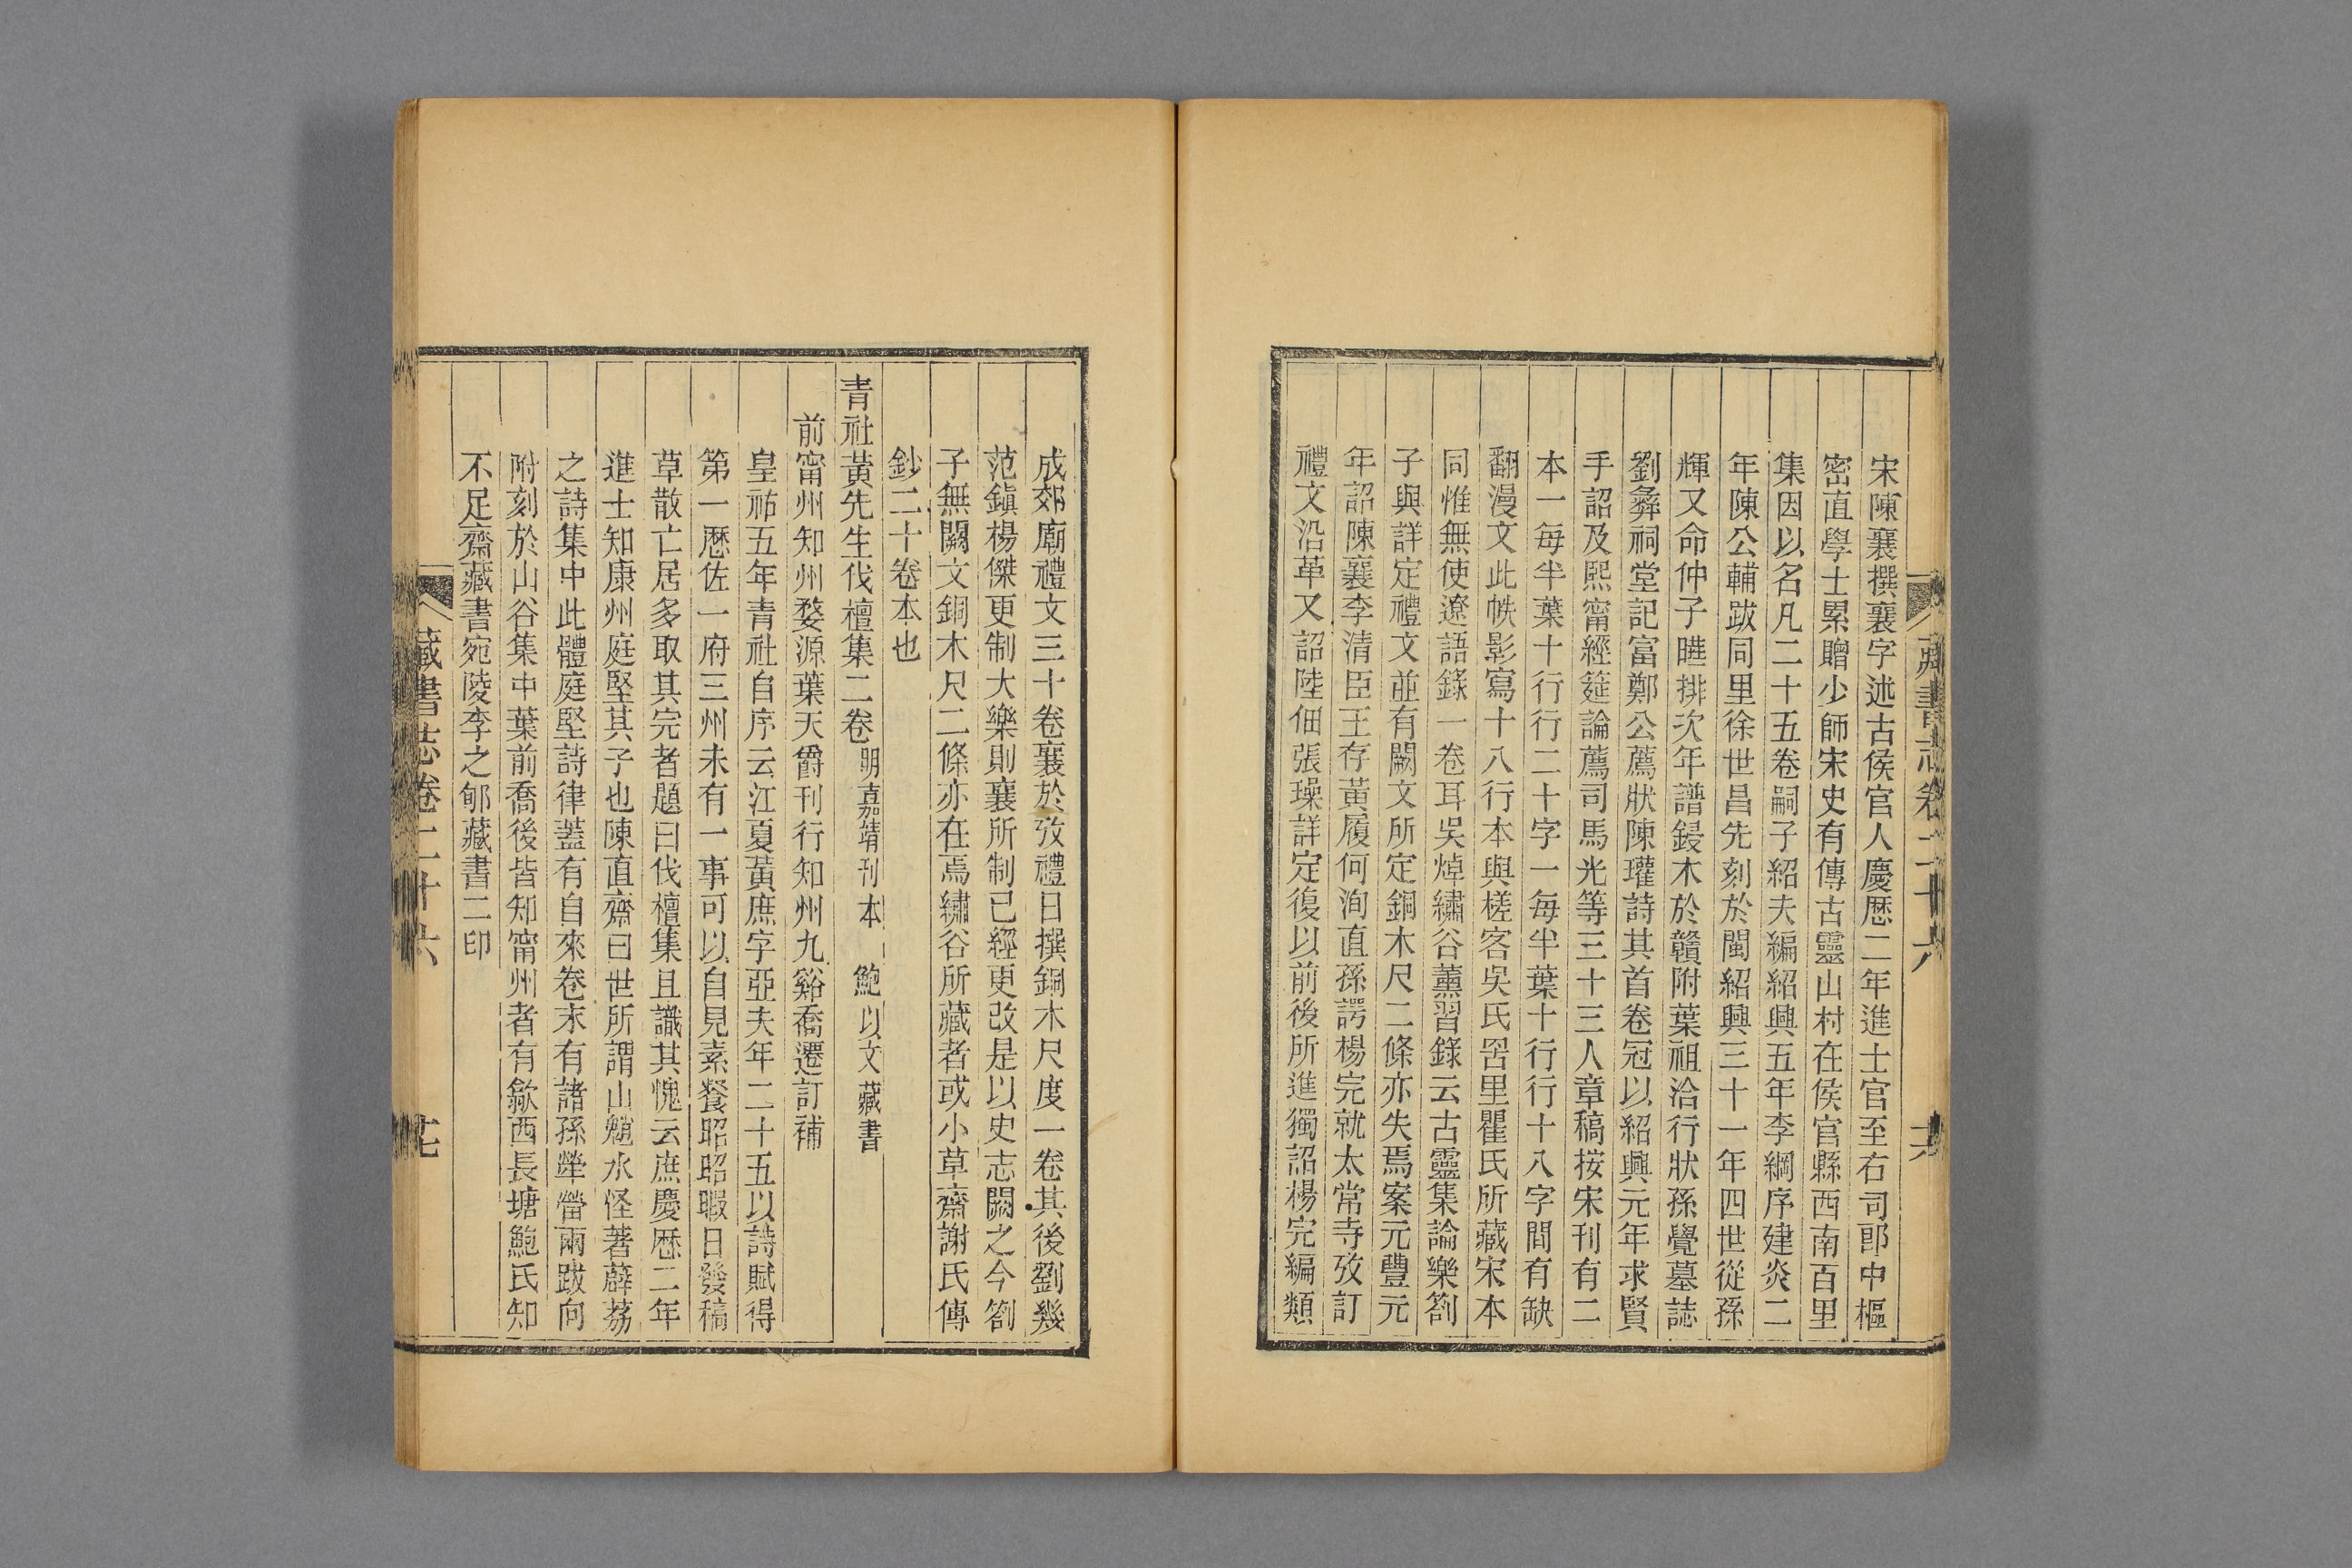 藏書志卷二十六
宋陳襄撰襄字述古侯官人慶歷二年進士官至右司郎中樞
密直學士累贈少師宋史有傳古靈山村在侯官縣西南百里
集因以名凡二十五卷嗣子紹夫編紹興五年李綱序建炎二
年陳公輔跋同里徐世昌先刻於閩紹興三十一年四世從孫
輝又命仲子曄排次年譜鋟木於贛附葉祖洽行狀孫覺墓誌
劉彝祠堂記富鄭公薦狀陳瓘詩其首卷冠以紹興元年求賢
手詔及熙甯經筵論薦司馬光等三十三人章稿按宋刊有二
本一每半葉十行行二十字一每半葉十行行十八字間有缺
翻漫文此帙影寫十八行本與槎客吳氏罟里瞿氏所藏宋本
同惟無使遼語錄一卷耳吳焯繡谷薰習錄云古靈集論樂劄
子與詳定禮文並有闕文所定銅木尺二條亦失焉案元豐元
年詔陳襄李清臣王存黃履何洵直孫諤楊完就太常寺攷訂
禮文沿革又詔陸佃張璪詳定復以前後所進獨詔楊完編類
成郊廟禮文三十卷襄於攷禮日撰銅木尺度一卷其後劉幾
范鎮楊傑更制大樂則襄所制已經更改是以史志闕之今劄
子無闕文銅木尺二條亦在焉繡谷所藏者或小草齋謝氏傳
鈔二十卷本也
青社黃先生伐檀集二卷 明嘉靖刊本 鮑以文藏書
前甯州知州婺源葉天爵刊行知州九谿喬遷訂補
皇祐五年青社自序云江夏黃庶字亞夫年二十五以詩賦得
第一歷佐一府三州未有一事可以自見素餐昭昭暇日發稿
草散亡居多取其完者題曰伐檀集且識其愧云庶慶歷二年
進士知康州庭堅其子也陳直齋曰世所謂山魈水怪著薜荔
之詩集中此體庭堅詩律蓋有自來卷末有諸孫犖㽦兩跋向
附刻於山谷集中葉前喬後皆知甯州者有歙西長塘鮑氏知
不足齋藏書宛陵李之郇藏書二印
藏書志卷二十六